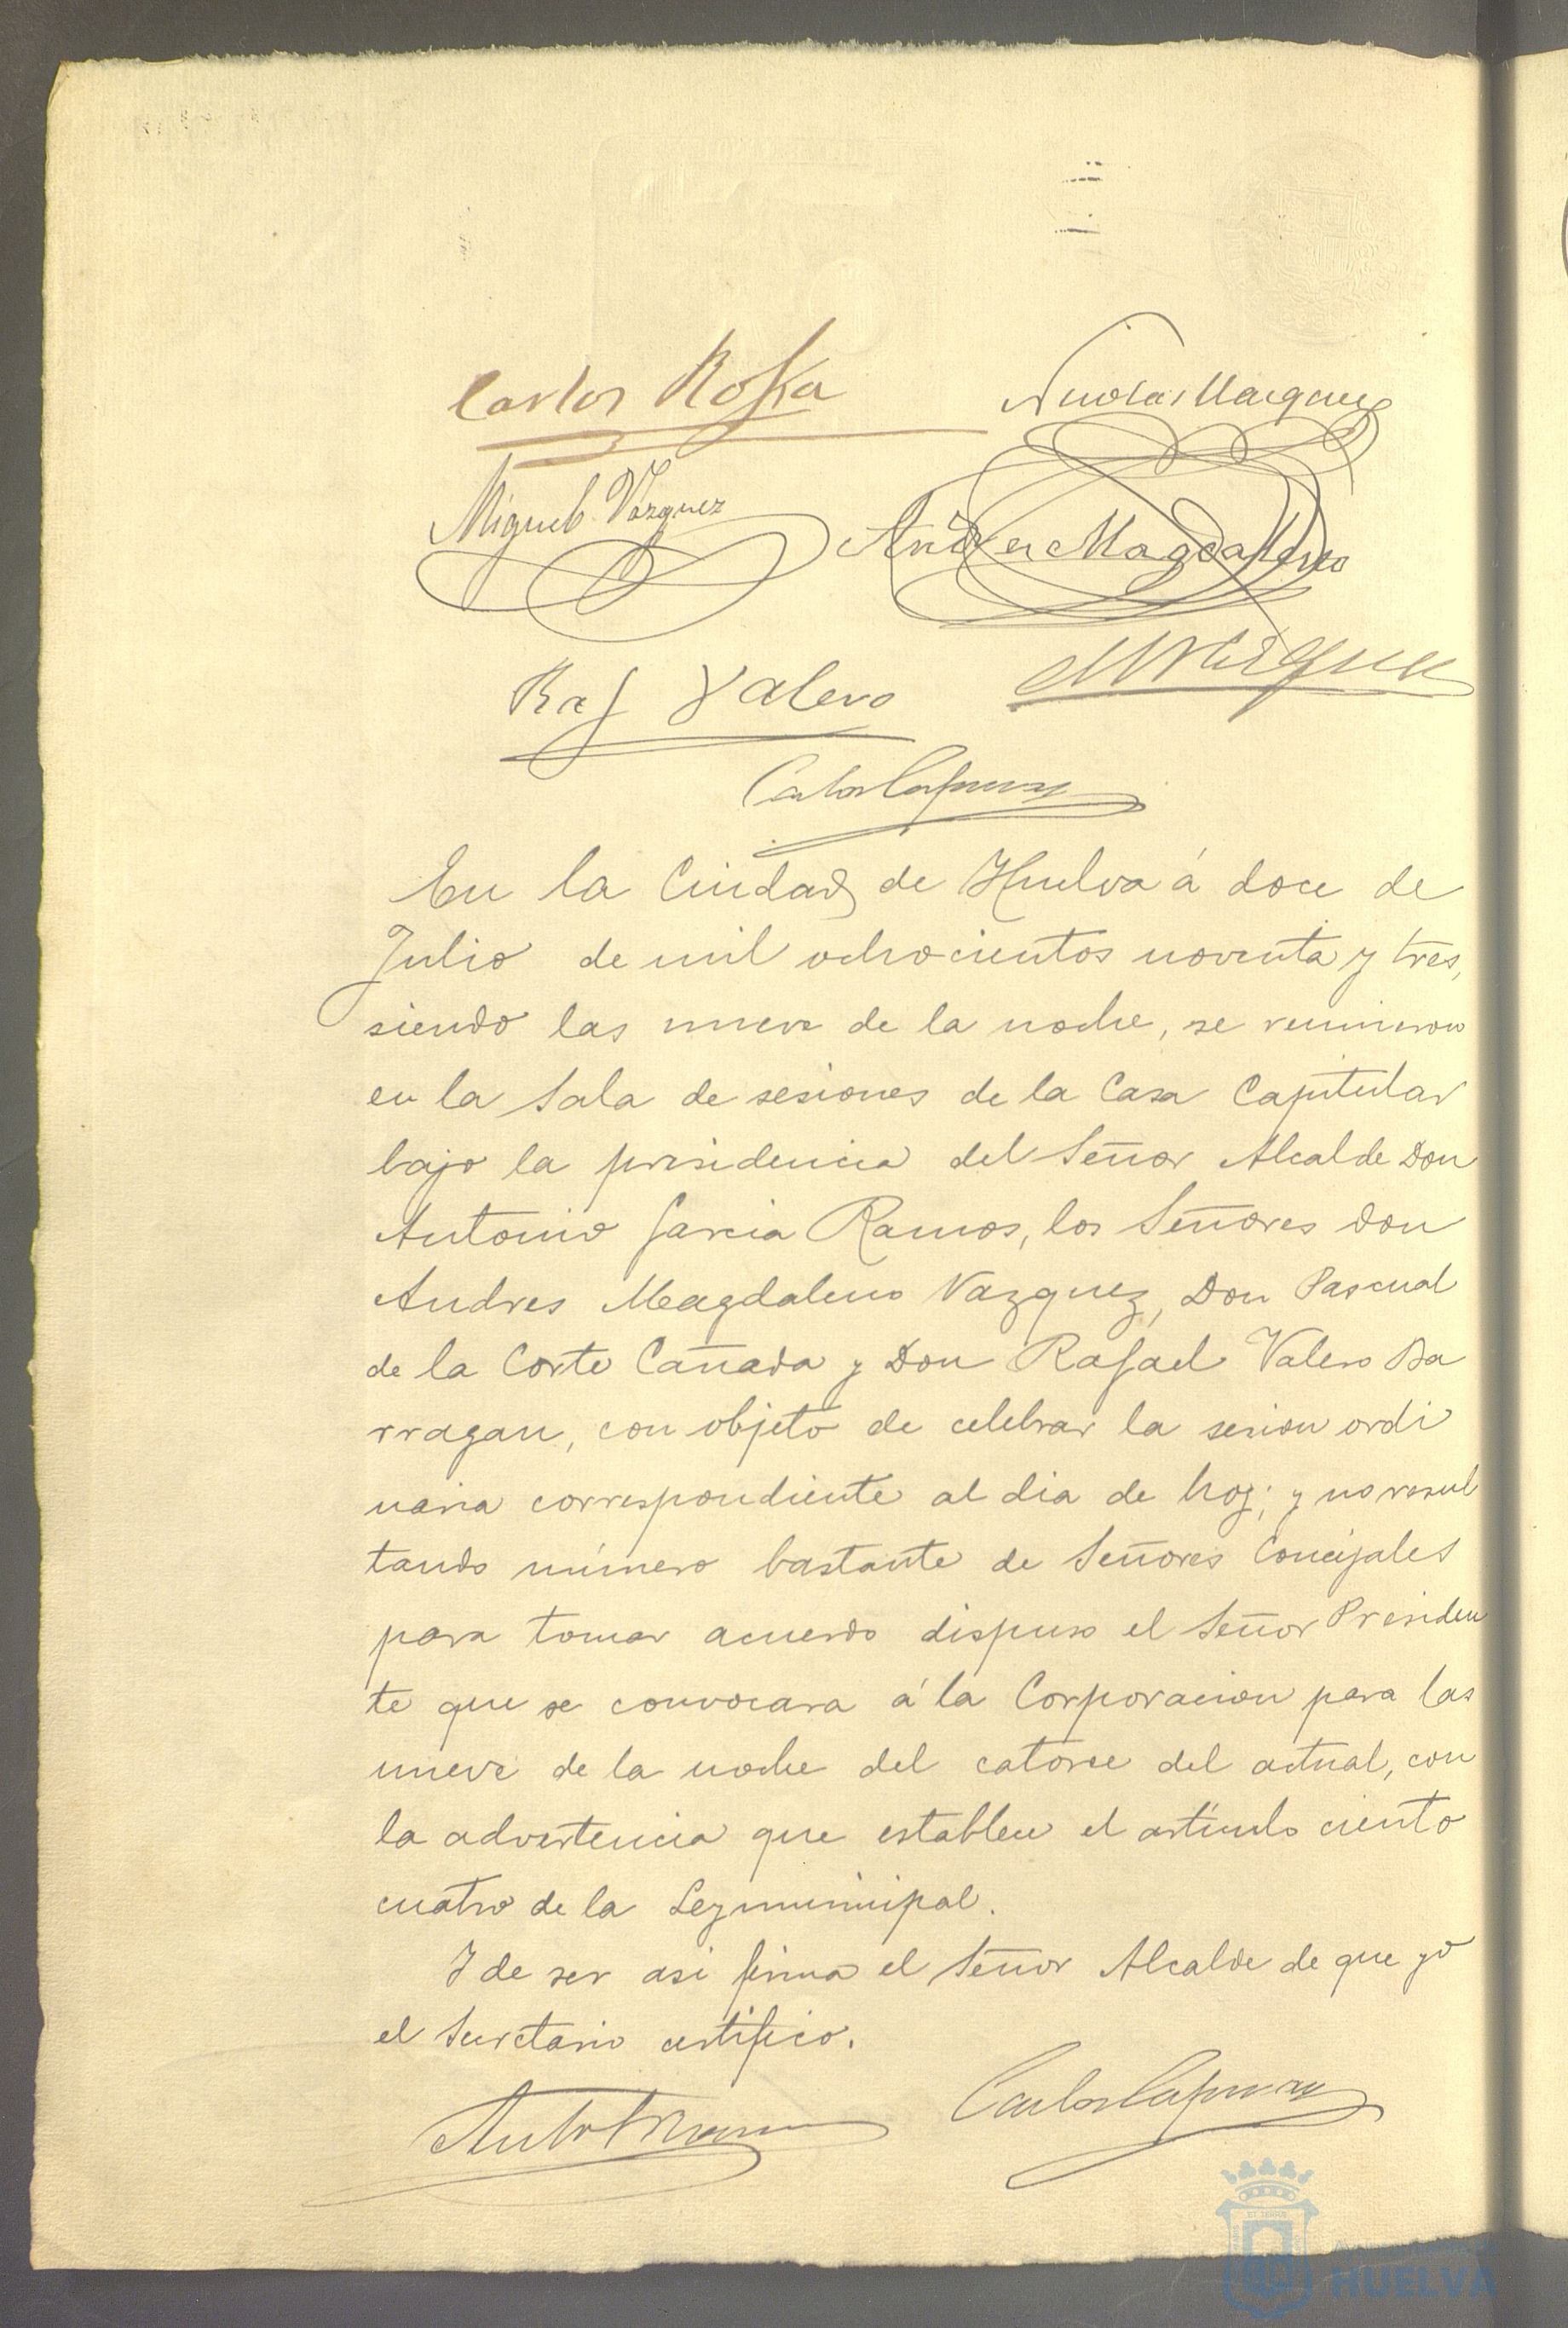 Carlos Roffa
Nicolas Marquez
Miguel Vázquez
Andres Magdaleno
Raf Valero
En la Ciudad de Huelva á doce de
Julio de mil ochocientos noventa y tres,
siendo las nueve de la noche, se reunieron
en la Sala de sesiones de la Casa Capitular
bajo la presidencia del Señor Alcalde Don
Antonio Garcia Ramos, los Señores Don
Andres Magdaleno Vazquez, Don Pascual
de la Corte Cañada y Don Rafael Valero Ba
rragan, con objeto de celebrar la sesion ordi
naria correspondiente al dia de hoy; y no resul
tando número bastante de Señores Concejales
para tomar acuerdo dispuso el Señor Presiden
te que se convocara á la Corporacion para las
nueve de la noche del catorce del actual, con
la advertencia que establece el artículo ciento
cuatro de la Ley municipal.
Y de ser asi firma el Señor Alcalde de que yo
el Secretario certifico.
HUELVA